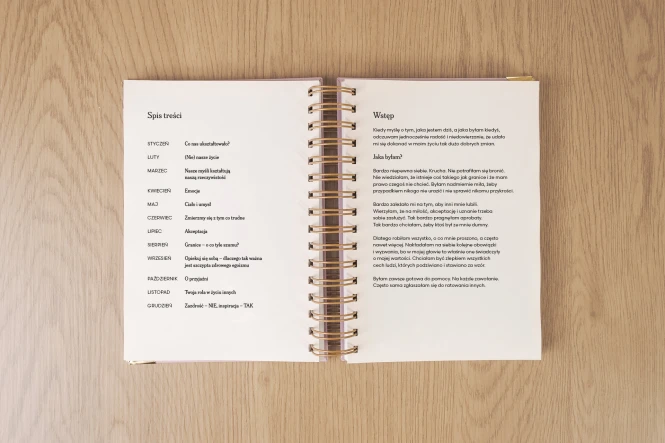 Spis treści
STYCZEŃ Co nas ukształtowało?
LUTY (Nie) nasze życie
MARZEC Nasze myśli kształtują
naszą rzeczywistość
KWIECIEŃ Emocje
MAJ Ciało i umysł
CZERWIEC Zmierzmy się z tym co trudne
LIPIEC Akceptacja
SIERPIEŃ Granice – o co tyle szumu?
WRZESIEŃ Opiekuj się sobą – dlaczego tak ważna
jest szczypta zdrowego egoizmu
PAŹDZIERNIK O przyjaźni
LISTOPAD Twoja rola w życiu innych
GRUDZIEŃ Zazdrość – NIE, inspiracja – TAK
Wstęp
Kiedy myślę o tym, jaka jestem dziś, a jaka byłam kiedyś,
odczuwam jednocześnie radość i niedowierzanie, że udało
mi się dokonać w moim życiu tak dużo dobrych zmian.
Jaka byłam?
Bardzo niepewna siebie. Krucha. Nie potrafiłam się bronić.
Nie wiedziałam, że istnieje coś takiego jak granice i że mam
prawo czegoś nie chcieć. Byłam nadmiernie miła, żeby
przypadkiem nikogo nie urazić i nie sprawić nikomu przykrości.
Bardzo zależało mi na tym, aby inni mnie lubili.
Wierzyłam, że na miłość, akceptację i uznanie trzeba
sobie zasłużyć. Tak bardzo pragnęłam aprobaty.
Tak bardzo chciałam, żeby ktoś był ze mnie dumny.
Dlatego robiłam wszystko, o co mnie proszono, a często
nawet więcej. Nakładałam na siebie kolejne obowiązki
i wyzwania, bo w mojej głowie to właśnie one świadczyły
o mojej wartości. Chciałam być zlepkiem wszystkich
cech ludzi, których podziwiano i stawiano za wzór.
Byłam zawsze gotowa do pomocy. Na każde zawołanie.
Często sama zgłaszałam się do ratowania innych.